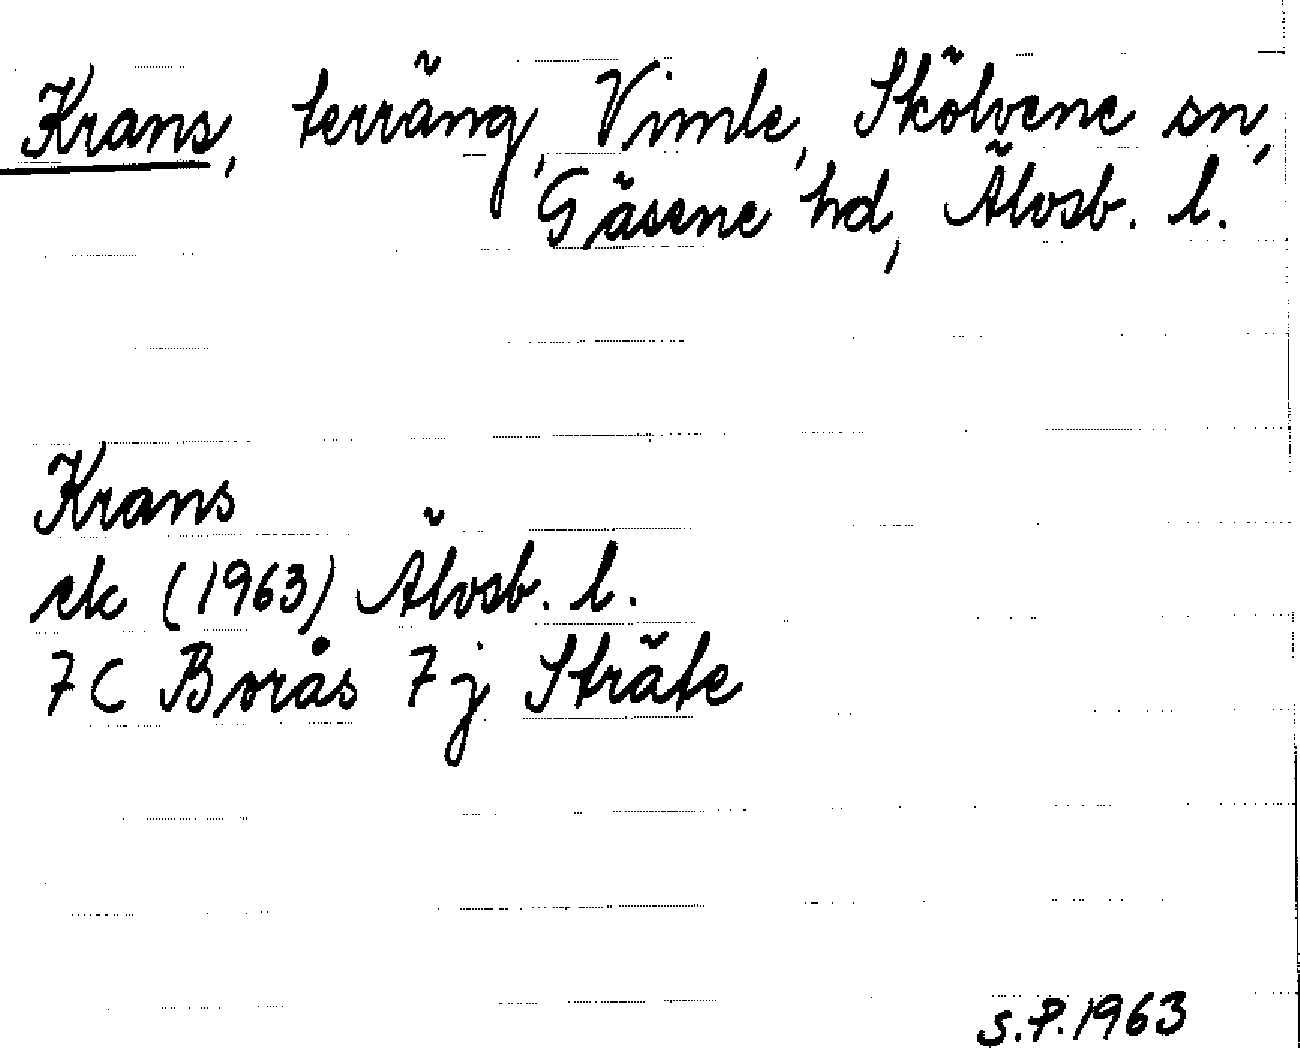 Krans, terräng, Vimle, Skölvene sn,
Gäsene hd, Älvsb. l.
Krans
ek (1963) Älvsb. l.
7C Borås 7j Sträte
S.P.1963